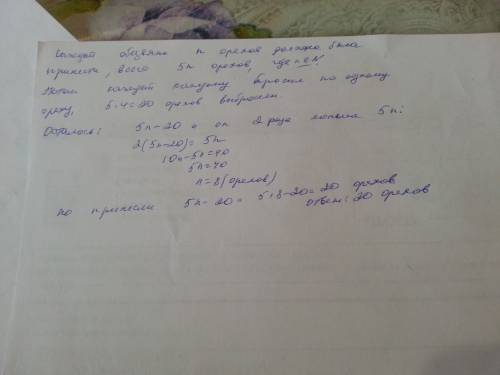 Каждая обезьяна n орехов должна была
принести, всего 5n орехов, где n∈N
Потом каждая каждому бросила по одному
ореху, 5·4=20 орехов выбросили.
Осталось: 5n-20 и он 2 раза меньше 5n:
2(5n-20)=5n
10n-5n=40
5n=40
n=8(орехов)
но принесли 5n-20= 5·8-20=20 орехов
ответ: 20 орехов